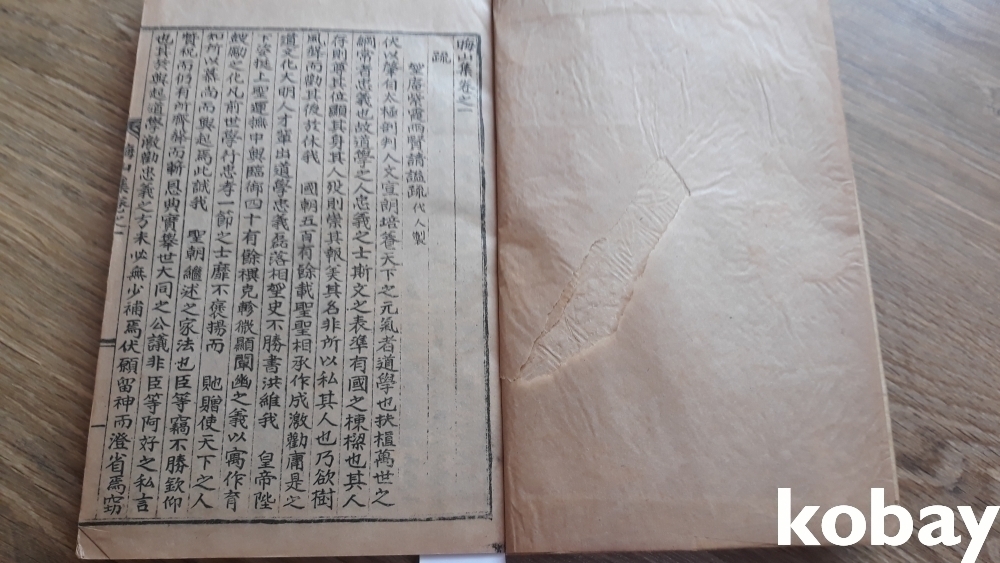 晦山集卷之一
疏
聖居紫霞兩賢請謚疏 代人製
伏以肇自太極剖判人文宣朗培養天下之元氣者道學也扶植萬世之
綱常者忠義也故道學之人忠義之士斯文之表準有國之棟樑也其人
存則尊其位顯其身其人歿則崇其報美其名非所以私其人也乃欲樹
風聲而勸其後於休我 國朝五百有餘載聖聖相承作成激勸庸是
道文化大明人才輩出道學忠義磊落相望史不勝書洪維我 皇帝陛
下姿挺上聖運撫中興臨御四十有餘禩克軫微顯闡幽之義以寓作育
之化凡前世學行忠孝一節之士靡不褒揚而 貤贈使天下之人
知所以慕尚而興起焉此誠我 聖朝繼述之家法也臣等竊不勝欽仰
祝而仍有所齎 而蘄恩典實擧世大同之公議非臣等阿好之私言
也其於興起道學激勸忠義之方未必無少補焉伏願留神而澄省焉窃
晦山集卷之一
kobay